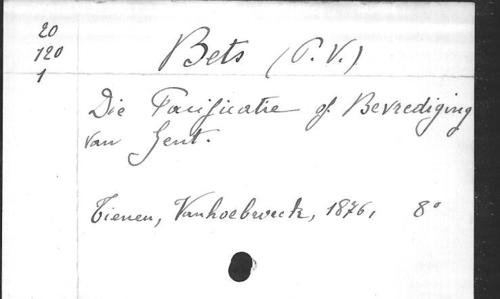 20
120
1
Bets (P.V.)
Die Pacificatie of Bevrediging
van Gent.
Tienen, Vanhoebroeck, 1876, 8°